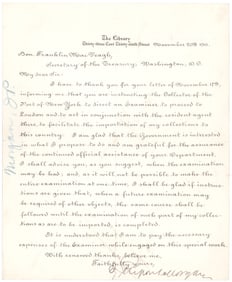 The Library
Thirty-three East Thirty-Sixth Street November 20th
Hon. Franklin MacVeagh,
Secretary of the Treasury, Washington, D.C.
My dear Sir:
I have to thank you for your letter of November 17th,
informing me that you are instructing the Collector of the
Port of New York to direct an Examiner to proceed to
London and to act in conjunction with the resident agent
there, to facilitate the importation of my collections to
this country. I am glad that the Government is interested
in what I propose to do and am grateful for the assurance
of the continued official assistance of your Department.
I shall advise you, as you suggest, when the examination
may be had; and as it will not be possible to make the
entire examination at one time, I shall be glad if instruc-
tions are given that, when a future examination may
be required of other objects, the same course shall be
followed until the examination of each part of my collec-
tions as are to be imported, is completed.
It is understood that I am to pay the necessary
expenses of the Examiner while engaged on this special work.
With renewed thanks, believe me,
Faithfully yours,
J. Pierpont Morgan
Morgan, J P